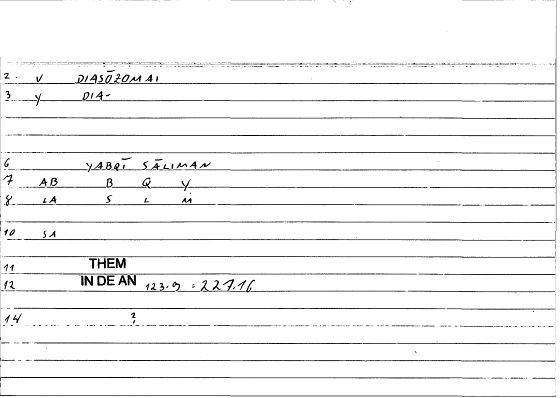 2. V DIASŌZOMAI
3 y DIA-
6 YABQĪ SĀLIMAN
7 AB B Q Y
8 LA S L M
10 SA
11 THEM
12 IN DE AN 123.9 = 227.16
14 ?